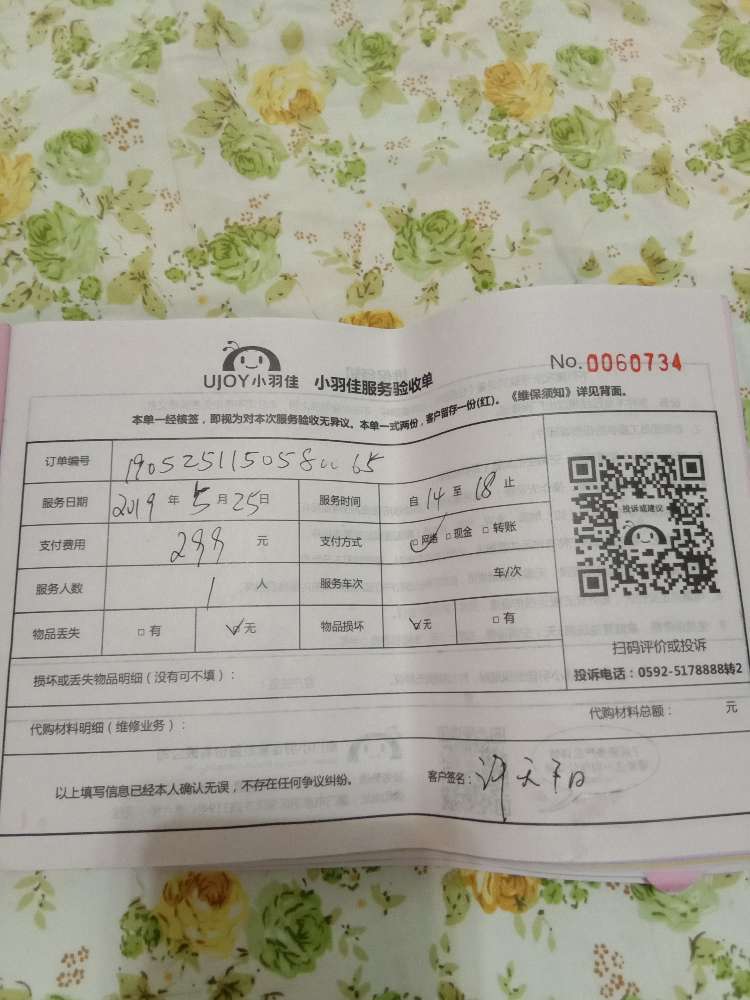 UJOY小羽佳 小羽佳服务验收单 No.0060734
本单一经核签，即视为对本次服务验收无异议。本单一式两份，客户留存一份(红)。《维保须知》详见背面。
订单编号 1905251150580065
服务日期 2019年5月25日 服务时间 自14至18止
支付费用 299元 支付方式 □网络 □现金 □转账
服务人数 1人 服务车次 车/次
物品丢失 □有 □无 物品损坏 □无 □有
投诉或建议
扫码评价或投诉
投诉电话：0592-5178888转2
损坏或丢失物品明细（没有可不填）：
代购材料明细（维修业务）： 代购材料总额： 元
以上填写信息已经本人确认无误，不存在任何争议纠纷。 客户签名：许天